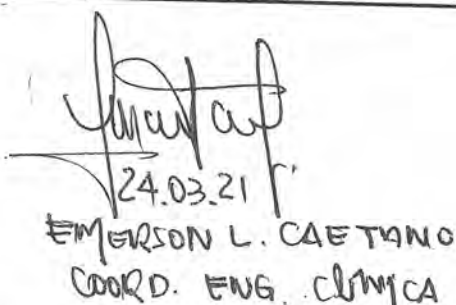 24.03.21
EMERSON L. CAETANO
COORD. ENG. CLÍNICA